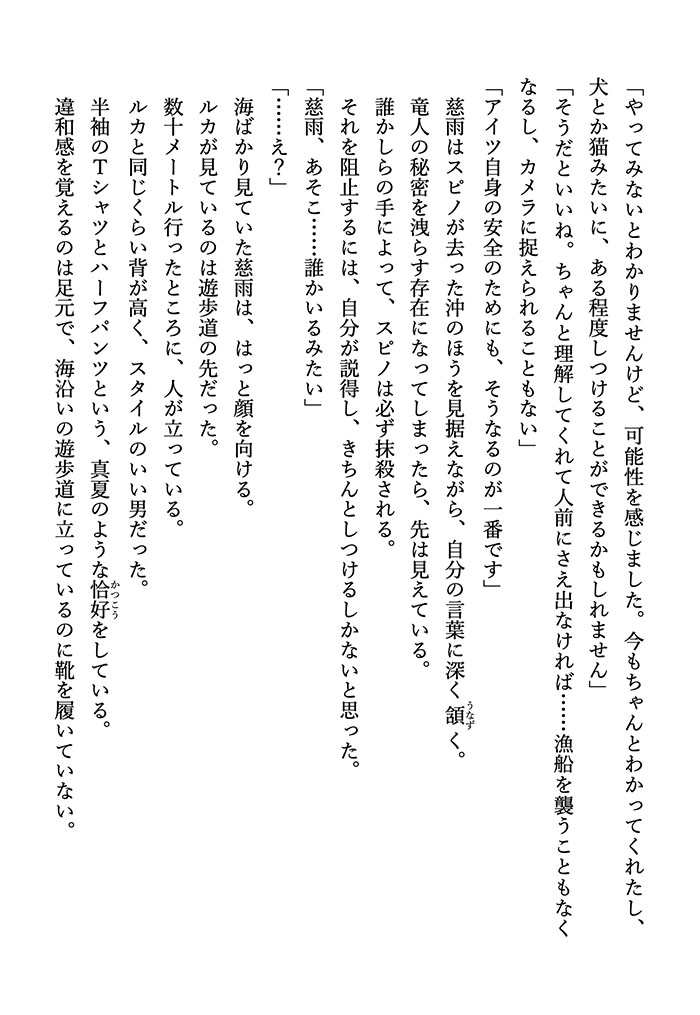 「やってみないとわかりませんけど、可能性を感じました。今もちゃんとわかってくれたし、
犬とか猫みたいに、ある程度しつけることができるかもしれません」
「そうだといいね。ちゃんと理解してくれて人前にさえ出なければ……漁船を襲うこともなく
なるし、カメラに捉えられることもない」
「アイツ自身の安全のためにも、そうなるのが一番です」
慈雨はスピノが去った沖のほうを見据えながら、自分の言葉に深く頷うなずく。
竜人の秘密を洩らす存在になってしまったら、先は見えている。
誰かしらの手によって、スピノは必ず抹殺される。
それを阻止するには、自分が説得し、きちんとしつけるしかないと思った。
「慈雨、あそこ……誰かいるみたい」
「……え？」
海ばかり見ていた慈雨は、はっと顔を向ける。
ルカが見ているのは遊歩道の先だった。
数十メートル行ったところに、人が立っている。
ルカと同じくらい背が高く、スタイルのいい男だった。
半袖のTシャツとハーフパンツという、真夏のような恰好かつこうをしている。
違和感を覚えるのは足元で、海沿いの遊歩道に立っているのに靴を履いていない。